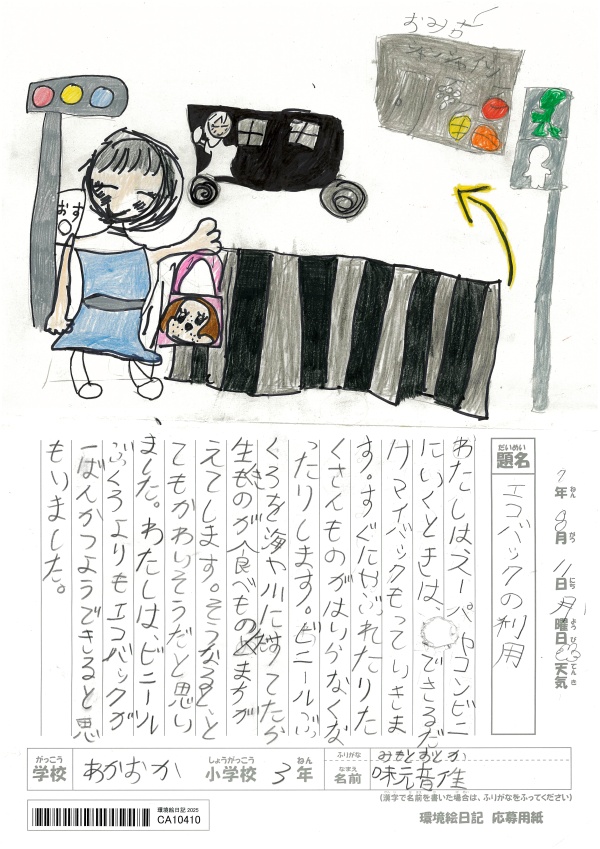 おみせ
おす
だいめい
題名
エコバックの利用
7年8月11日月曜日
天気
ねん
がつ
にち
ようび
てんき
わたしはスーパやコンビニ
にいくときは、できるだ
けマイバックもっていきま
す。すぐにやぶれたりた
くさんものがはいらなくな
ったりします。ビニールぶ
くろを海や川にすてたら
生きものが食べものとまちが
えてします。そうなると、と
てもかわいそうだと思い
ました。わたしは、ビニール
ぶくろよりもエコバックが
一ばんかつようできると思
もいました。
がっこう
学校
あかおか
しょうがっこう
小学校
3年
ねん
ふりがな
みもとおとか
なまえ
名前
味元音佳
(漢字で名前を書いた場合は、ふりがなをふってください)
環境絵日記2025
CA10410
環境絵日記 応募用紙